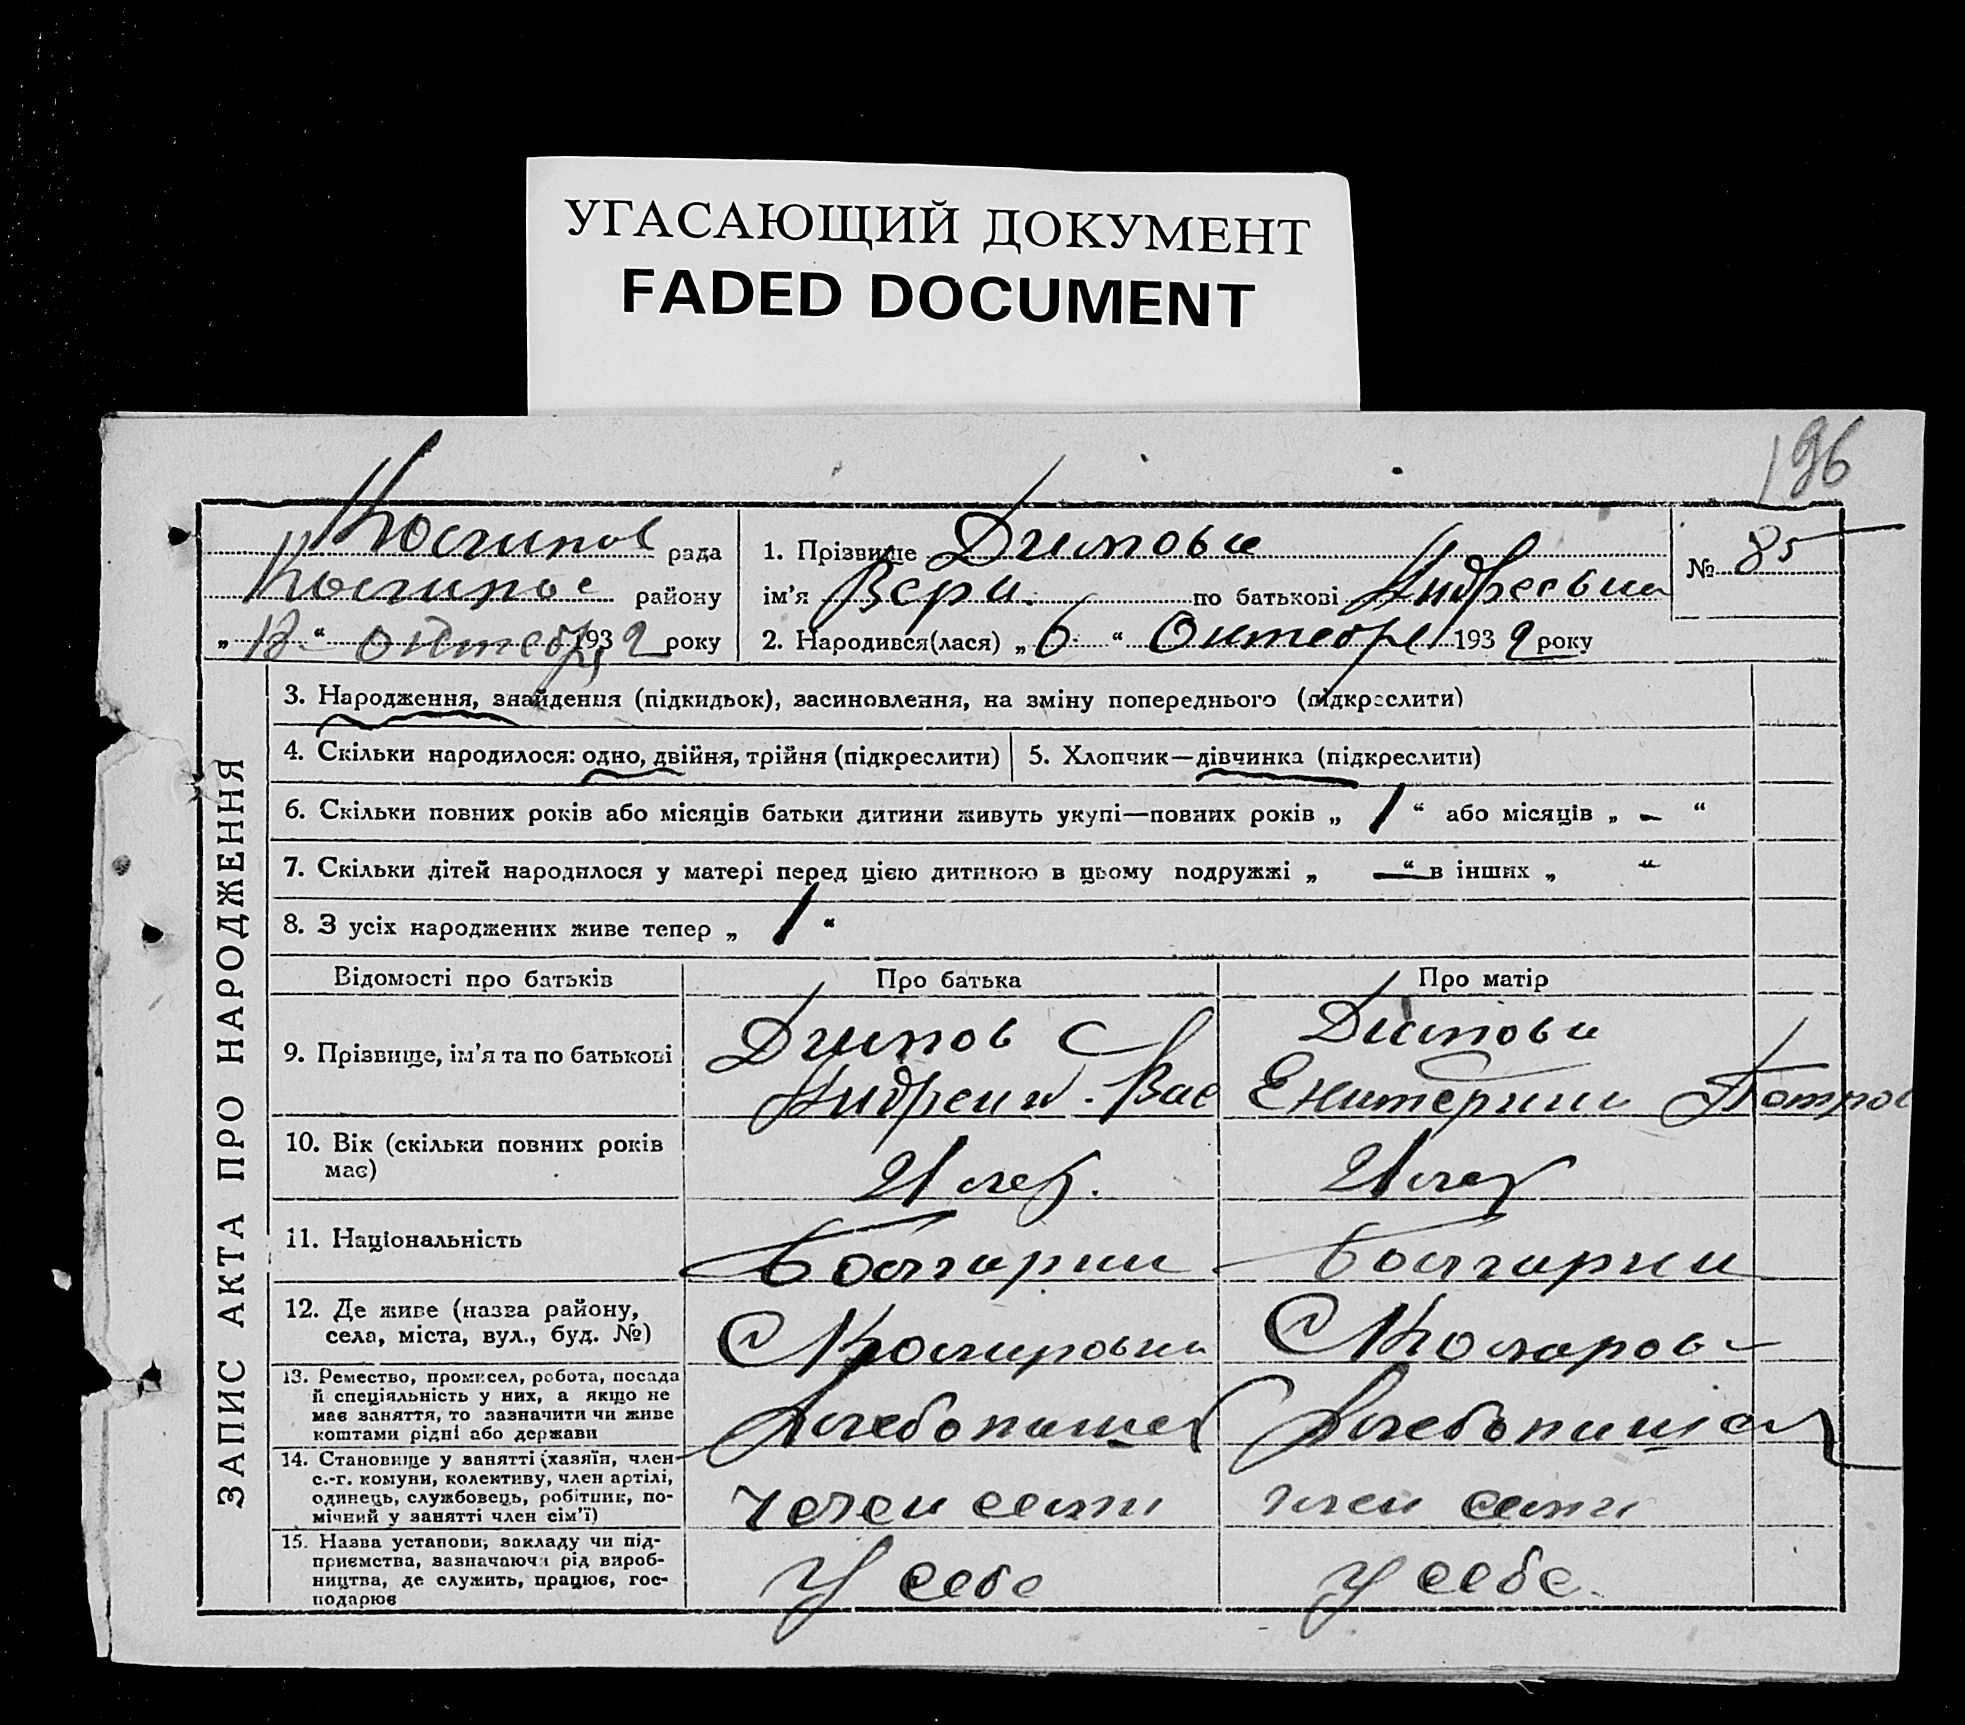 УГАСАЮЩИЙ ДОКУМЕНТ
FADED DOCUMENT
196
рада
району
„ 12 “ октебр 1932 року
1. Прізвище Димова
ім'я Вера. по батькові Андреевна
2. Народився(лася) „ 6 “ Октебре 1932 року
№ 85
ЗАПИС АКТА ПРО НАРОДЖЕННЯ
3. Народження, знайдення (підкидьок), засиновлення, на зміну попереднього (підкреслити)
4. Скільки народилося: одно, двійня, трійня (підкреслити)
5. Хлопчик—дівчинка (підкреслити)
6. Скільки повних років або місяців батьки дитини живуть укупі—повних років „ 1 “ або місяців „ - “
7. Скільки дітей народилося у матері перед цією дитиною в цьому подружжі „ — “ в інших „ “
8. З усіх народжених живе тепер „ 1 “
Відомості про батьків
Про батька
Про матір
9. Прізвище, ім'я та по батькові
Димов С
Андреи . Вас
Димова
Екатерина Петров
10. Вік (скільки повних років
має)
21 лет.
21 лет
11. Національність
Болгарин
болгарки
12. Де живе (назва району,
села, міста, вул., буд. №)
13. Ремество, промисел, робота, посада
й спеціяльність у них, а якщо не
має заняття, то зазначити чи живе
коштами рідні або держави
Хлебопашец
Хлебопашец
14. Становище у занятті (хазяїн, член
с.-г. комуни, колективу, член артілі,
одинець, службовець, робітник, по-
мічний у занятті член сім'ї)
член семи
член семи
15. Назва установи, закладу чи під-
приємства, зазначаючи рід вироб-
ництва, де служить, працює, гос-
подарює
У себе
У себе.